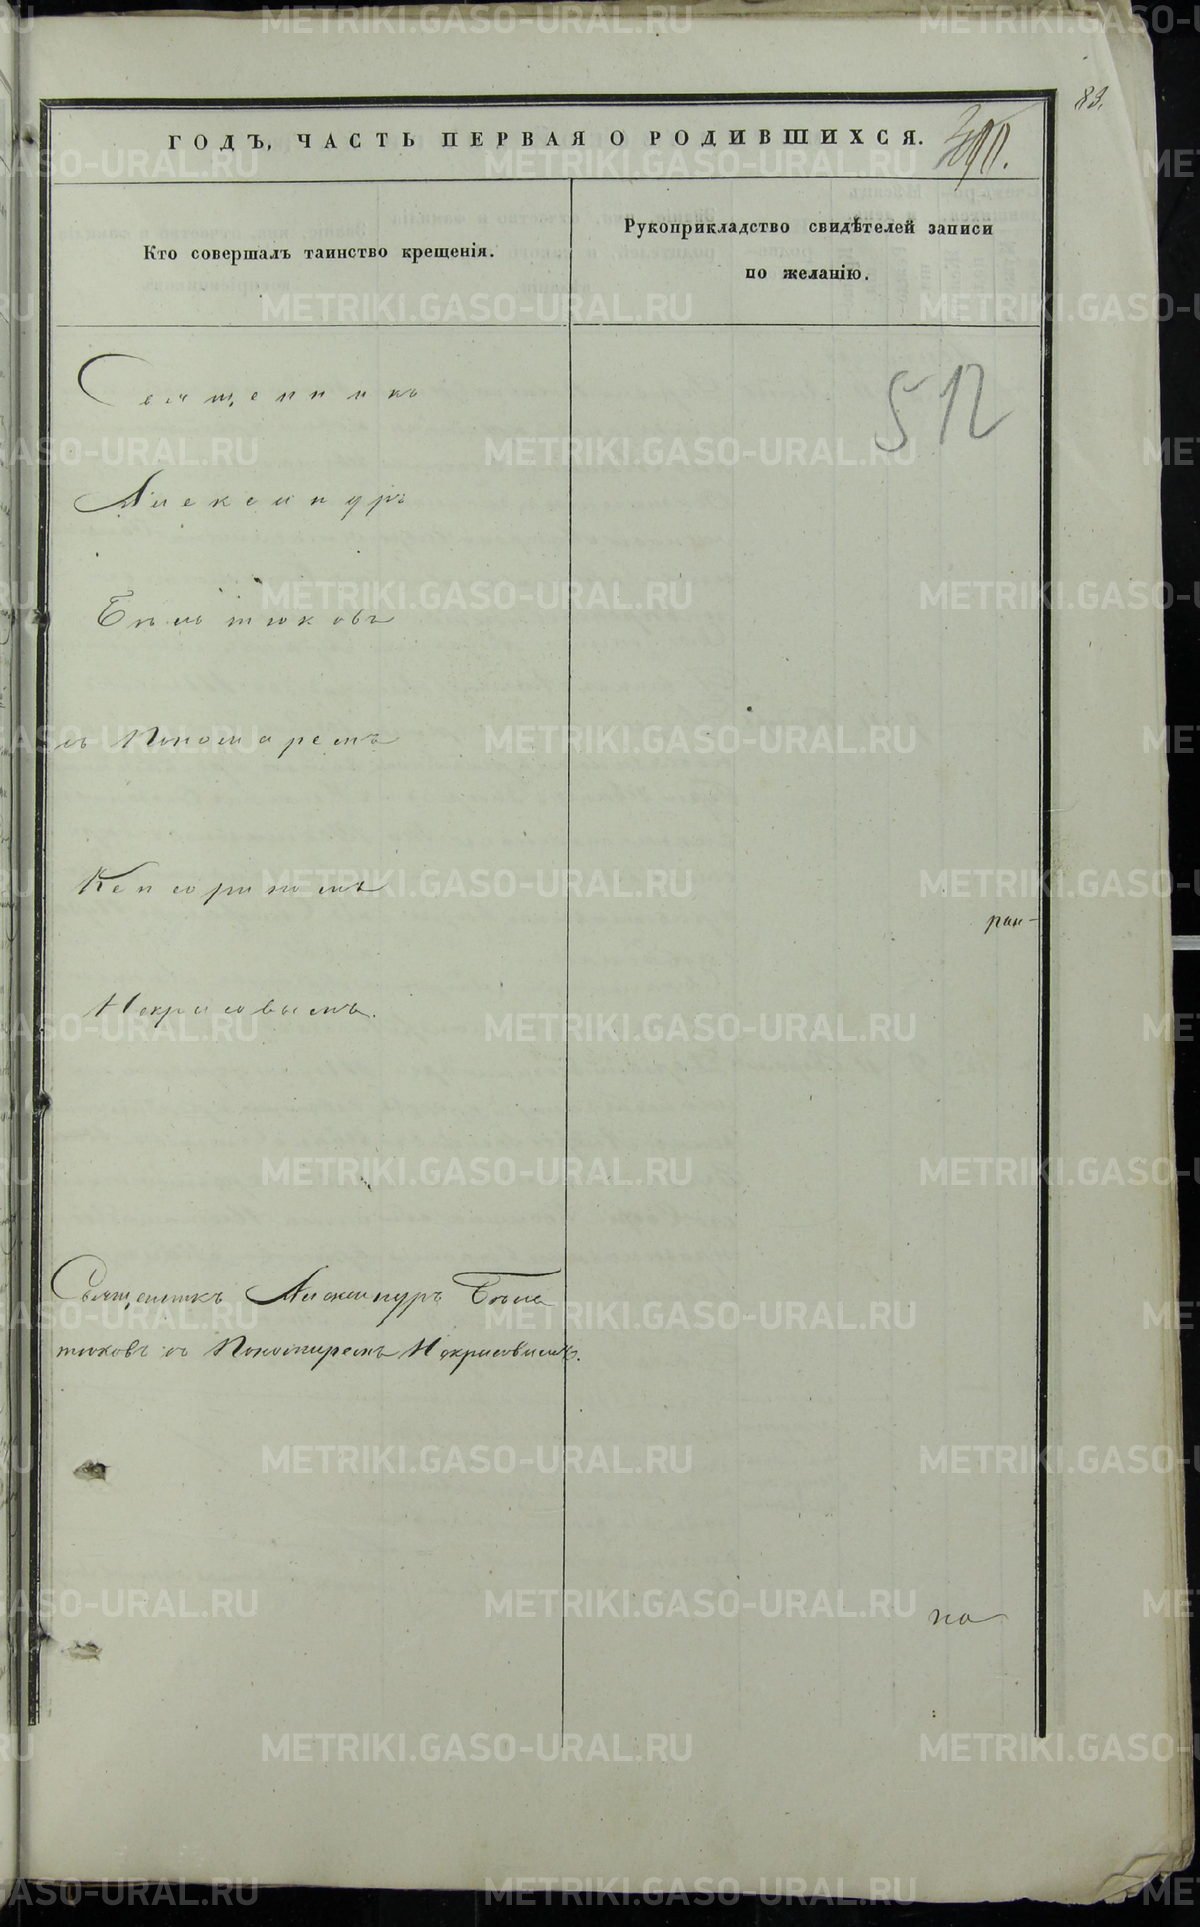 83.
ГОДЪ, ЧАСТЬ ПЕРВАЯ О РОДИВШИХСЯ.
Кто совершалъ таинство крещенія.
Рукоприкладство свидѣтелей записи
по желанію.
512
Священникъ
Александръ
Бѣльтюковъ
съ Пономаремъ
Кенсориномъ
ран-
Некрасовымъ.
Священникъ Александръ Бѣль
тюковъ съ Пономаремъ Некрасовымъ.
по
METRIKI.GASO-URAL.RU